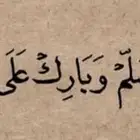 سَلِّمْ وَبَارِكْ عَلَى